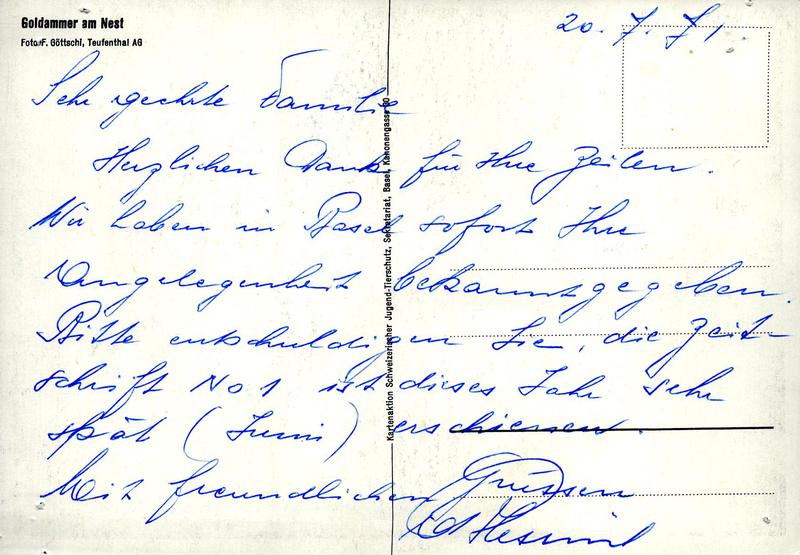 Goldammer am Nest
Foto: F. Göttschl, Teufenthal AG
20. 7. 71
Sehr geehrte Familie
Herzlichen Dank für Ihre Zeilen.
Wir haben in Basel sofort Ihre
Angelegenheit bekanntgegeben.
Bitte entschuldigen Sie, die Zeit-
schrift No 1 ist dieses Jahr sehr
spät (Juni) erschienen.
Mit freundlichen Grüssen
Kartenaktion Schweizerischer Jugend-Tierschutz, Sekretariat, Basel, Kanonengasse